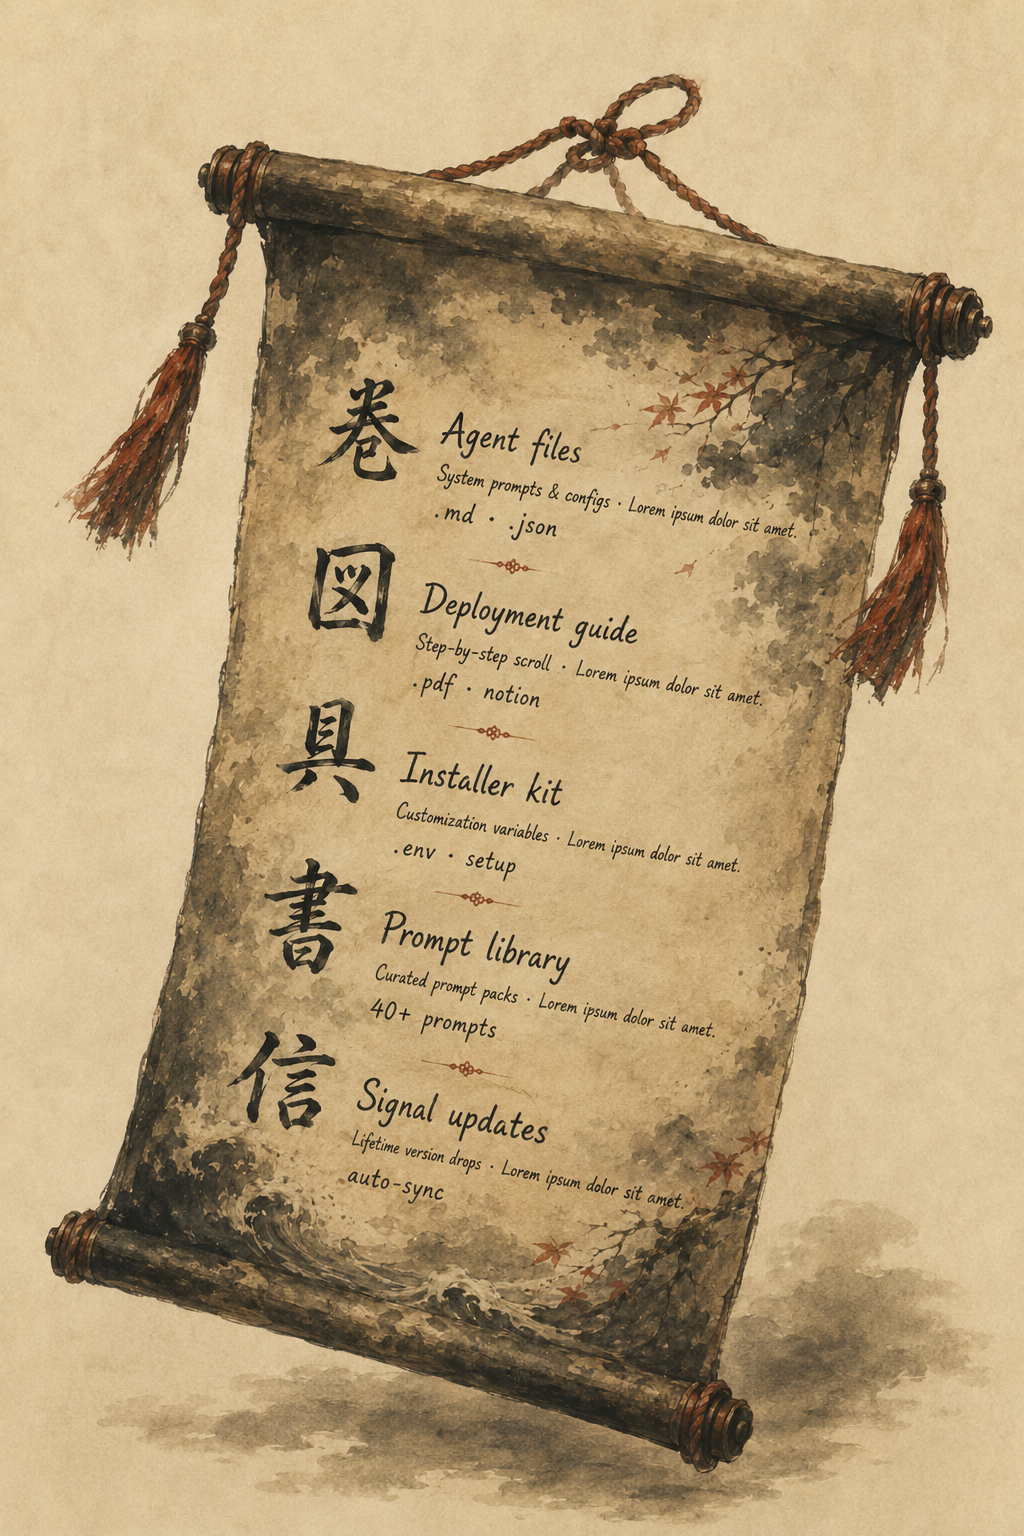 巻
Agent files
System prompts & configs · Lorem ipsum dolor sit amet.
.md · .json
図
Deployment guide
Step-by-step scroll · Lorem ipsum dolor sit amet.
.pdf · notion
具
Installer kit
Customization variables · Lorem ipsum dolor sit amet.
.env · setup
書
Prompt library
Curated prompt packs · Lorem ipsum dolor sit amet.
40+ prompts
信
Signal updates
Lifetime version drops · Lorem ipsum dolor sit amet.
auto-sync